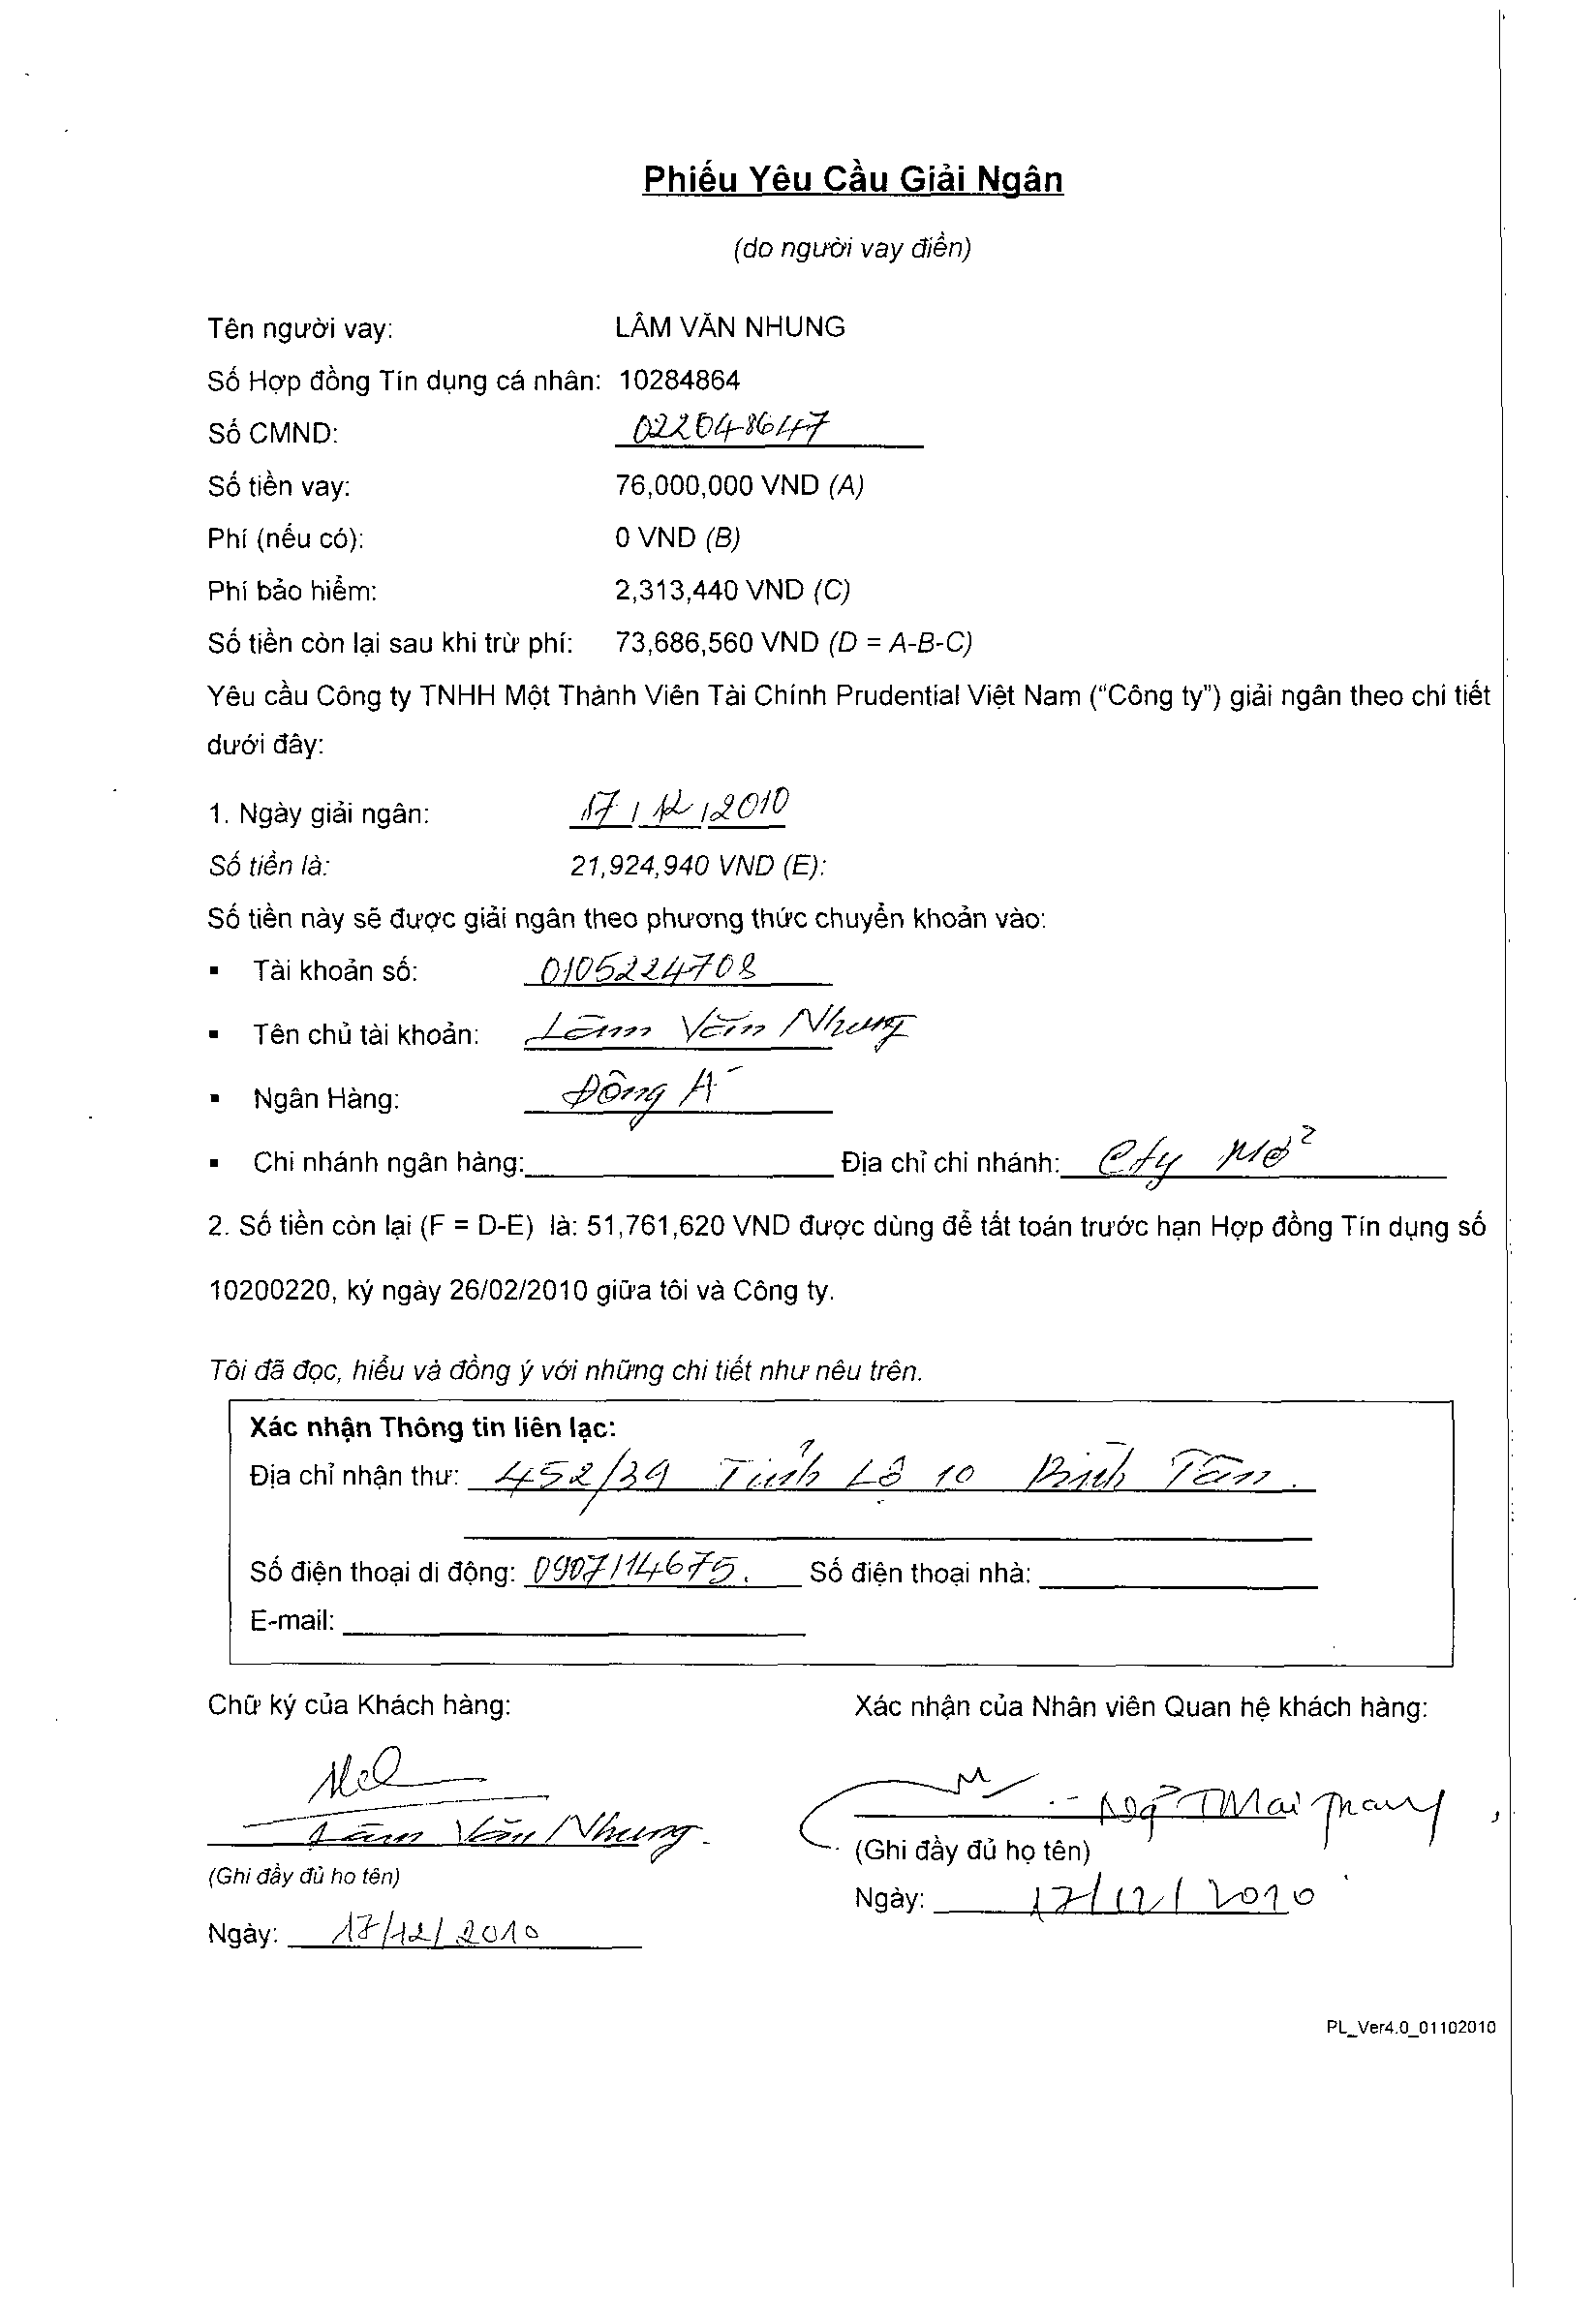 Phiếu Yêu Cầu Giải Ngân
(do người vay điền)
Tên người vay: LÂM VĂN NHUNG
Số Hợp đồng Tín dụng cá nhân: 10284864
Số CMND: 022048647
Số tiền vay: 76,000,000 VND (A)
Phí (nếu có): 0 VND (B)
Phí bảo hiểm: 2,313,440 VND (C)
Số tiền còn lại sau khi trừ phí: 73,686,560 VND (D = A-B-C)
Yêu cầu Công ty TNHH Một Thành Viên Tài Chính Prudential Việt Nam ("Công ty") giải ngân theo chi tiết
dưới đây:
1. Ngày giải ngân: 17/12/2010
Số tiền là: 21,924,940 VND (E):
Số tiền này sẽ được giải ngân theo phương thức chuyển khoản vào:
▪ Tài khoản số: 0105224708
▪ Tên chủ tài khoản: Lâm Văn Nhung
▪ Ngân Hàng: Đông Á
▪ Chi nhánh ngân hàng: Địa chỉ chi nhánh: Cty
2. Số tiền còn lại (F = D-E) là: 51,761,620 VND được dùng để tất toán trước hạn Hợp đồng Tín dụng số
10200220, ký ngày 26/02/2010 giữa tôi và Công ty.
Tôi đã đọc, hiểu và đồng ý với những chi tiết như nêu trên.
Xác nhận Thông tin liên lạc:
Địa chỉ nhận thư: 452/39 Tỉnh Lộ 10 Bình Tân.
Số điện thoại di động: 0907114675. Số điện thoại nhà:
E-mail:
Chữ ký của Khách hàng: Xác nhận của Nhân viên Quan hệ khách hàng:
Lâm Văn Nhung. Mai Trang
(Ghi đầy đủ họ tên) (Ghi đầy đủ họ tên)
Ngày: 17/12/2010 Ngày: 17/12/2010
PL_Ver4.0_01102010